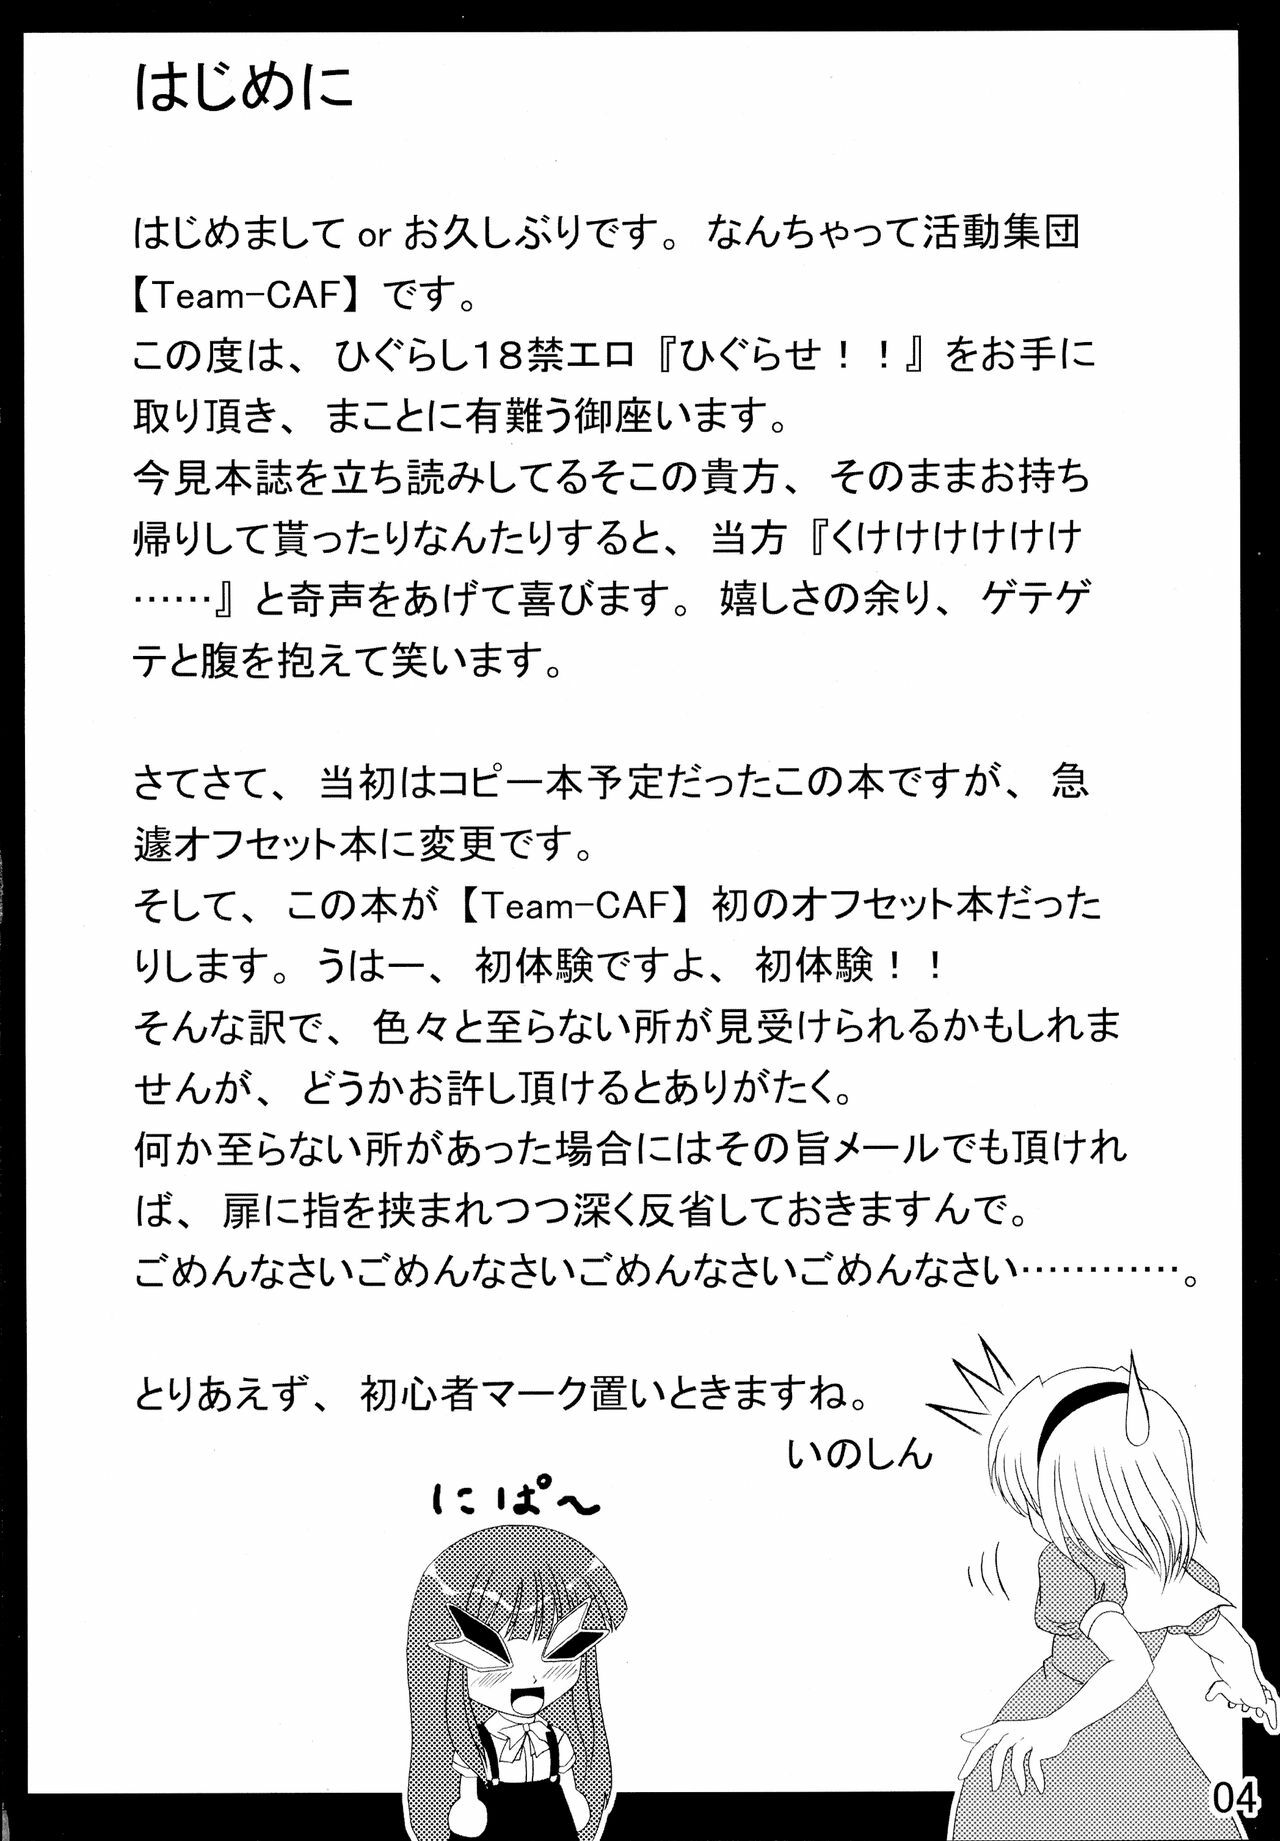 はじめに
はじめまして or お久しぶりです。なんちゃって活動集団
【Team-CAF】です。
この度は、ひぐらし18禁エロ『ひぐらせ！！』をお手に
取り頂き、まことに有難う御座います。
今見本誌を立ち読みしてるそこの貴方、そのままお持ち
帰りして貰ったりなんたりすると、当方『くけけけけけけ
……』と奇声をあげて喜びます。嬉しさの余り、ゲテゲ
テと腹を抱えて笑います。
さてさて、当初はコピー本予定だったこの本ですが、急
遽オフセット本に変更です。
そして、この本が【Team-CAF】初のオフセット本だった
りします。うはー、初体験ですよ、初体験！！
そんな訳で、色々と至らない所が見受けられるかもしれま
せんが、どうかお許し頂けるとありがたく。
何か至らない所があった場合にはその旨メールでも頂けれ
ば、扉に指を挟まれつつ深く反省しておきますんで。
ごめんなさいごめんなさいごめんなさいごめんなさい…………。
とりあえず、初心者マーク置いときますね。
いのしん
にぱ～
04